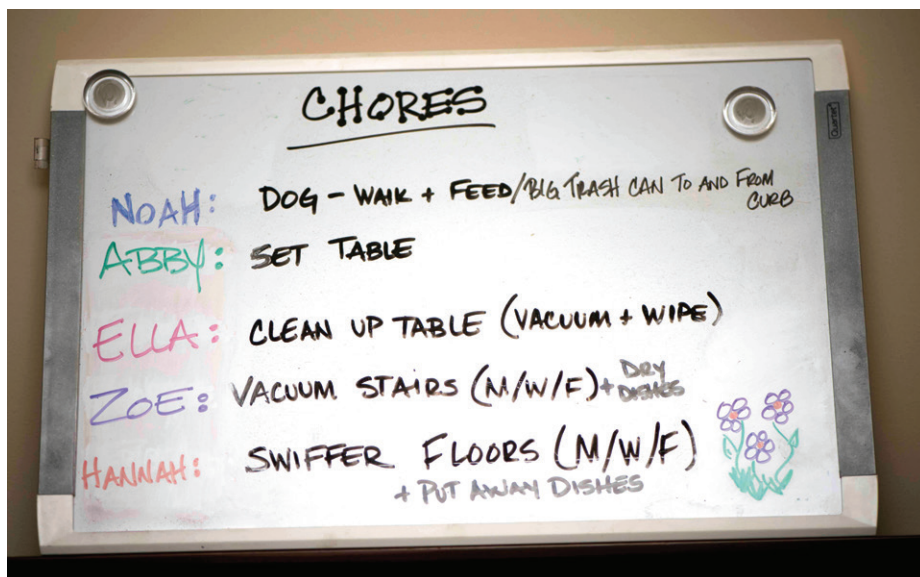 CHORES
Quartet
NOAH: DOG - WALK + FEED/BIG TRASH CAN TO AND FROM
CURB
ABBY: SET TABLE
ELLA: CLEAN UP TABLE (VACUUM + WIPE)
ZOE: VACUUM STAIRS (M/W/F) + DRY
DISHES
HANNAH: SWIFFER FLOORS (M/W/F)
+ PUT AWAY DISHES